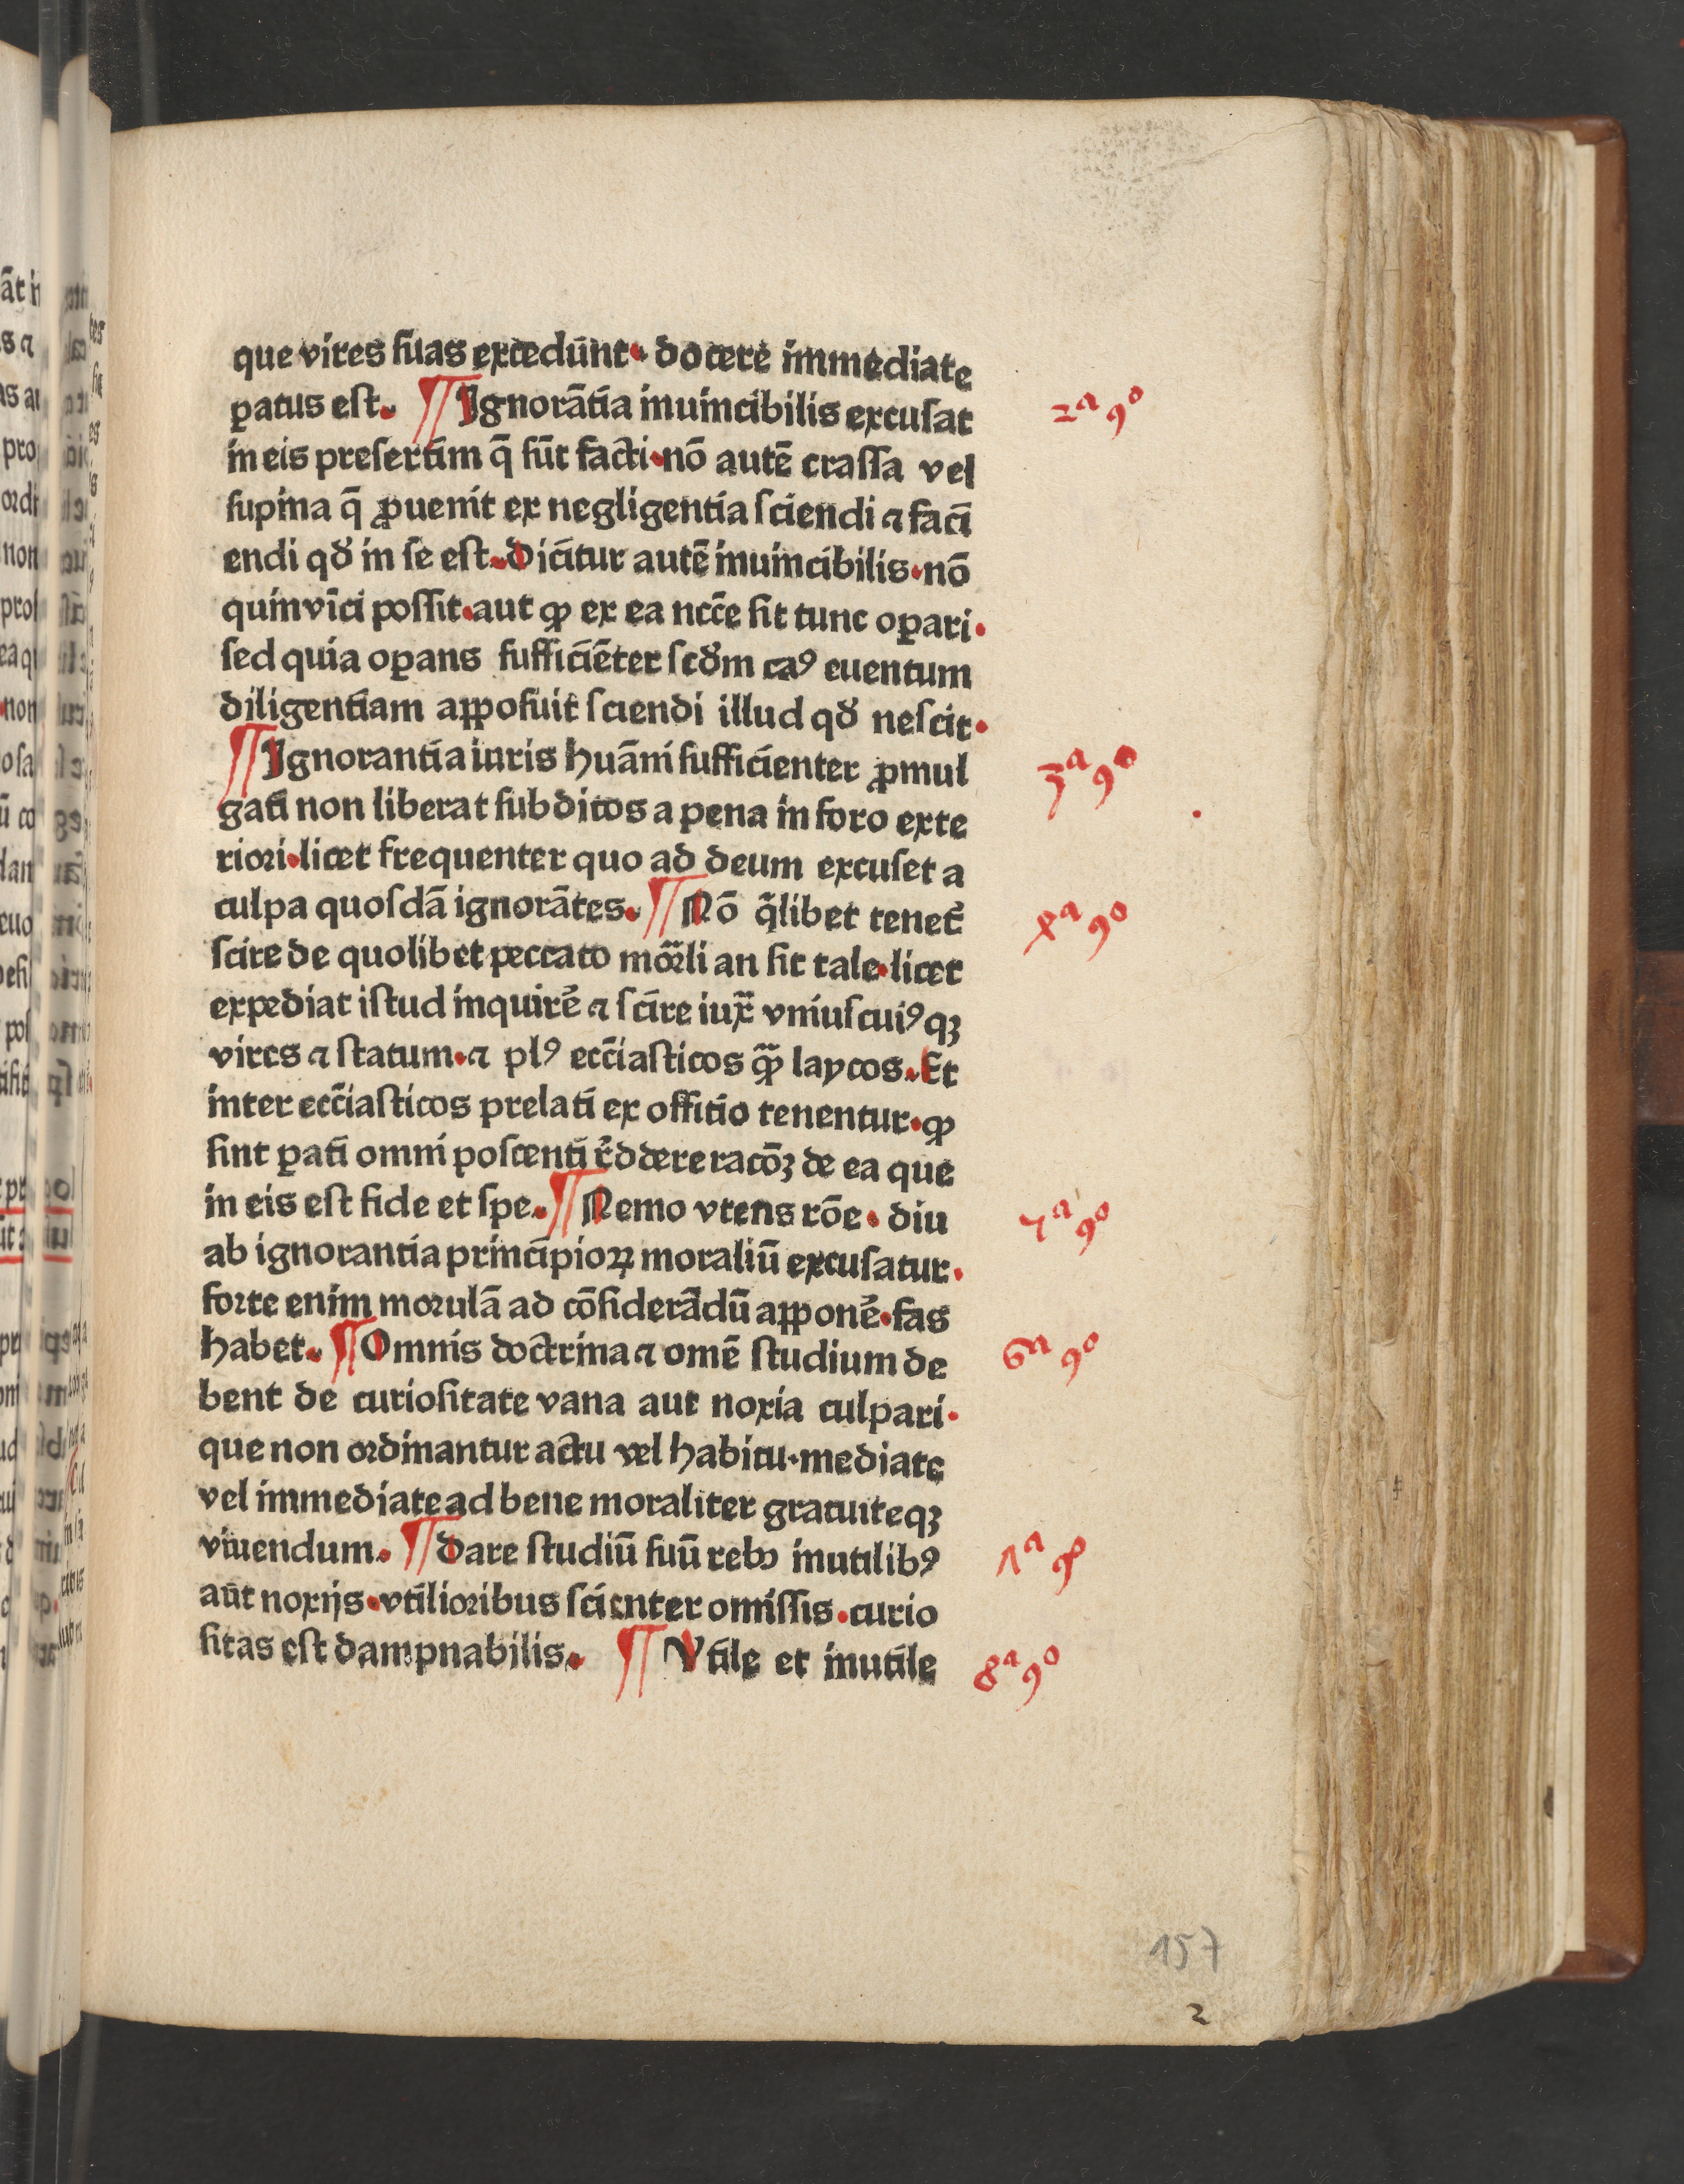 que vires suas excedūnt. docere immediate
ꝑatus est. ¶ Ignorātia inuincibilis excusat
in eis presertim q̄ sūt facti. nō autē crassa vel
supina q̄ ꝓuenit ex negligentia sciendi ⁊ faci
endi qđ in se est. Dicitur autē inuincibilis. nō
quin vīci possit. aut ꝙ ex ea ncc̄e sit tunc oꝑari.
sed quia oꝑans sufficiēter scđm caꝰ euentum
diligentiam apposuit sciendi illud qđ nescit.
¶ Ignorantia iuris huāni sufficienter ꝓmul
gati non liberat subditos a pena in foro exte
riori. licet frequenter quo ad deum excuset a
culpa quosdā ignorātes. ¶ Nō q̄libet tenet᷑
scire de quolibet peccato mor̄li an sit tale. licet
expediat istud inquirē ⁊ scire iux̄ vniuscuiꝰqꝫ
vires ⁊ statum. ⁊ plꝰ ecc̄iasticos ꝙ̄ laycos. Et
inter ecc̄iasticos prelati ex offitio tenentur. ꝙ
sint ꝑati omni poscenti r̄ddere racōꝫ de ea que
in eis est fide et spe. ¶ Nemo vtens rōe. diu
ab ignorantia principioꝝ moraliū excusatur.
forte enim morulā ad cōsiderādū apponē. fas
habet. ¶ Omnis doctrina ⁊ omē studium de
bent de curiositate vana aut noxia culpari.
que non ordinantur actu vel habitu. mediate
vel immediate ad bene moraliter gratuiteqꝫ
viuendum. ¶ Dare studiū suū rebꝰ inutilibꝰ
aūt noxijs. vtilioribus scienter omissis. curio
sitas est dampnabilis. ¶ Vtile et inutile
2ª ꝯº
3ª ꝯº
4ª ꝯº
5ª ꝯº
6ª ꝯº
7ª ꝯº
8ª ꝯº
157
2